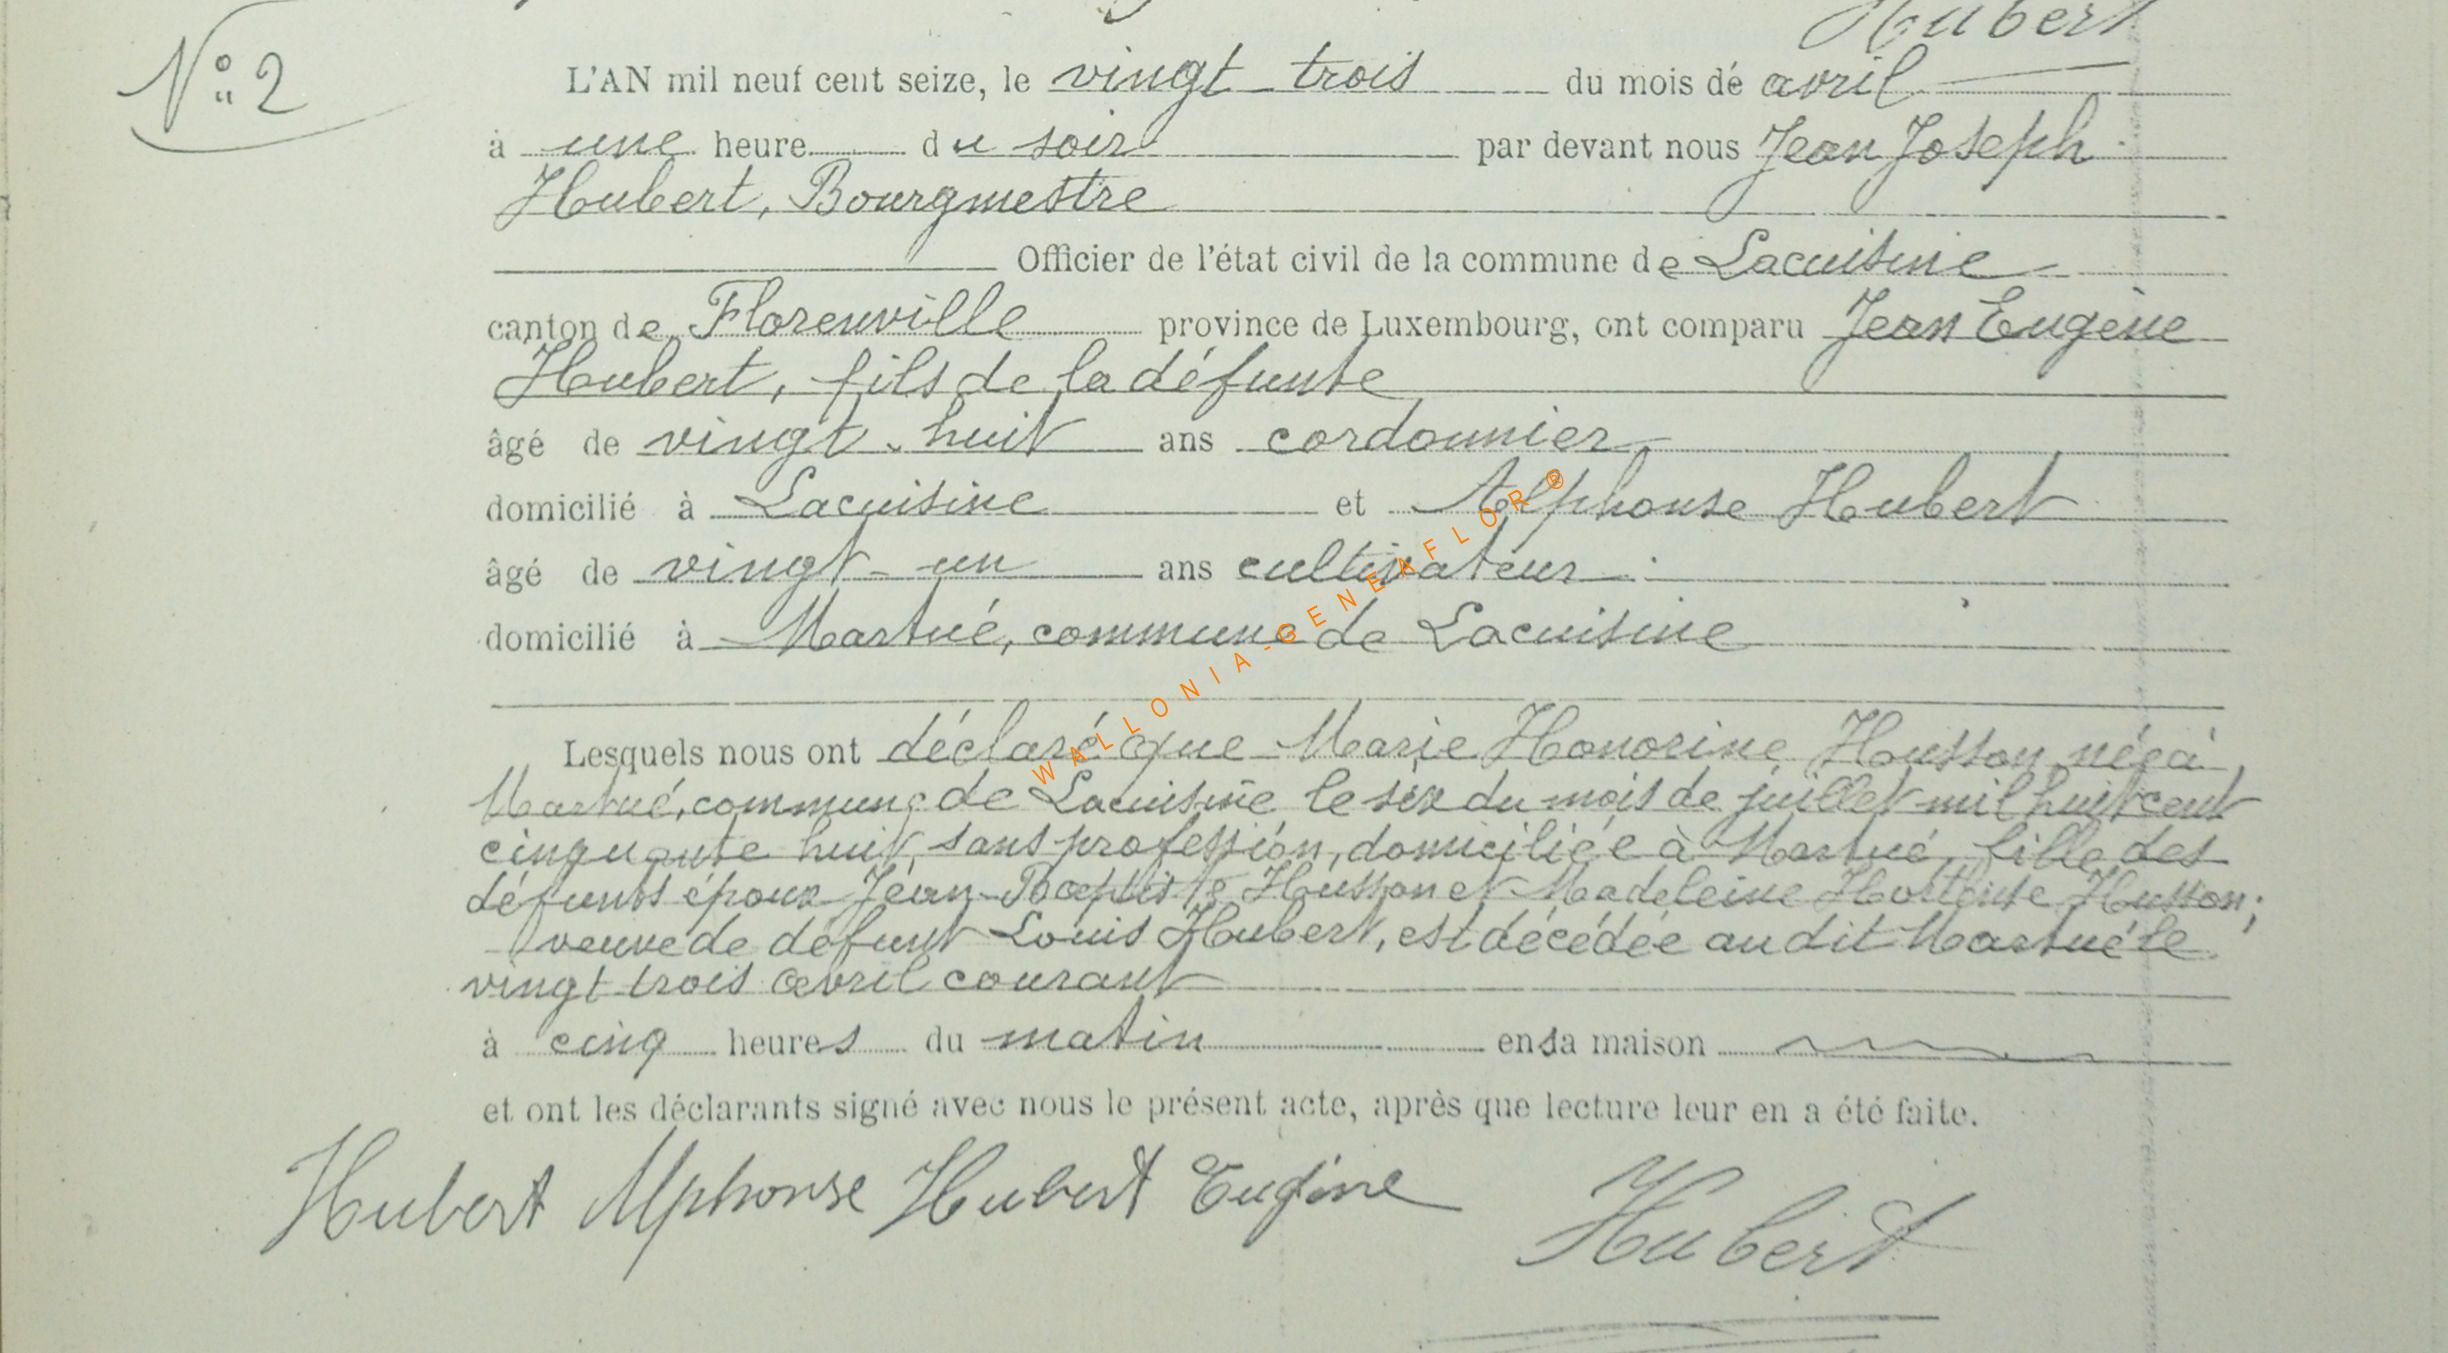 Hubert
N° 2
L'AN mil neuf cent seize, le vingt trois du mois de avril
à une heure du soir par devant nous Jean Joseph
Hubert, Bourgmestre
Officier de l'état civil de la commune de Lacuisine
canton de Florenville province de Luxembourg, ont comparu Jean Eugène
Hubert, fils de la défunte
âgé de vingt-huit ans cordonnier
domicilié à Lacuisine et Alphonse Hubert
âgé de vingt-un ans cultivateur
domicilié à Martué, commune de Lacuisine
Lesquels nous ont déclaré que Marie Honorine Husson née à
Martué, commune de Lacuisine le six du mois de juillet mil huit cent
cinquante huit, sans profession, domiciliée à Martué, fille des
défunts époux Jean-Baptiste Husson et Madeleine Hortense Husson;
veuve de défunt Louis Hubert, est décédée au dit Martué le
vingt trois avril courant
à cinq heures du matin en sa maison
et ont les déclarants signé avec nous le présent acte, après que lecture leur en a été faite.
Hubert Alphonse Hubert Eugène Hubert
WALLONIA-GENEAFLOR ®